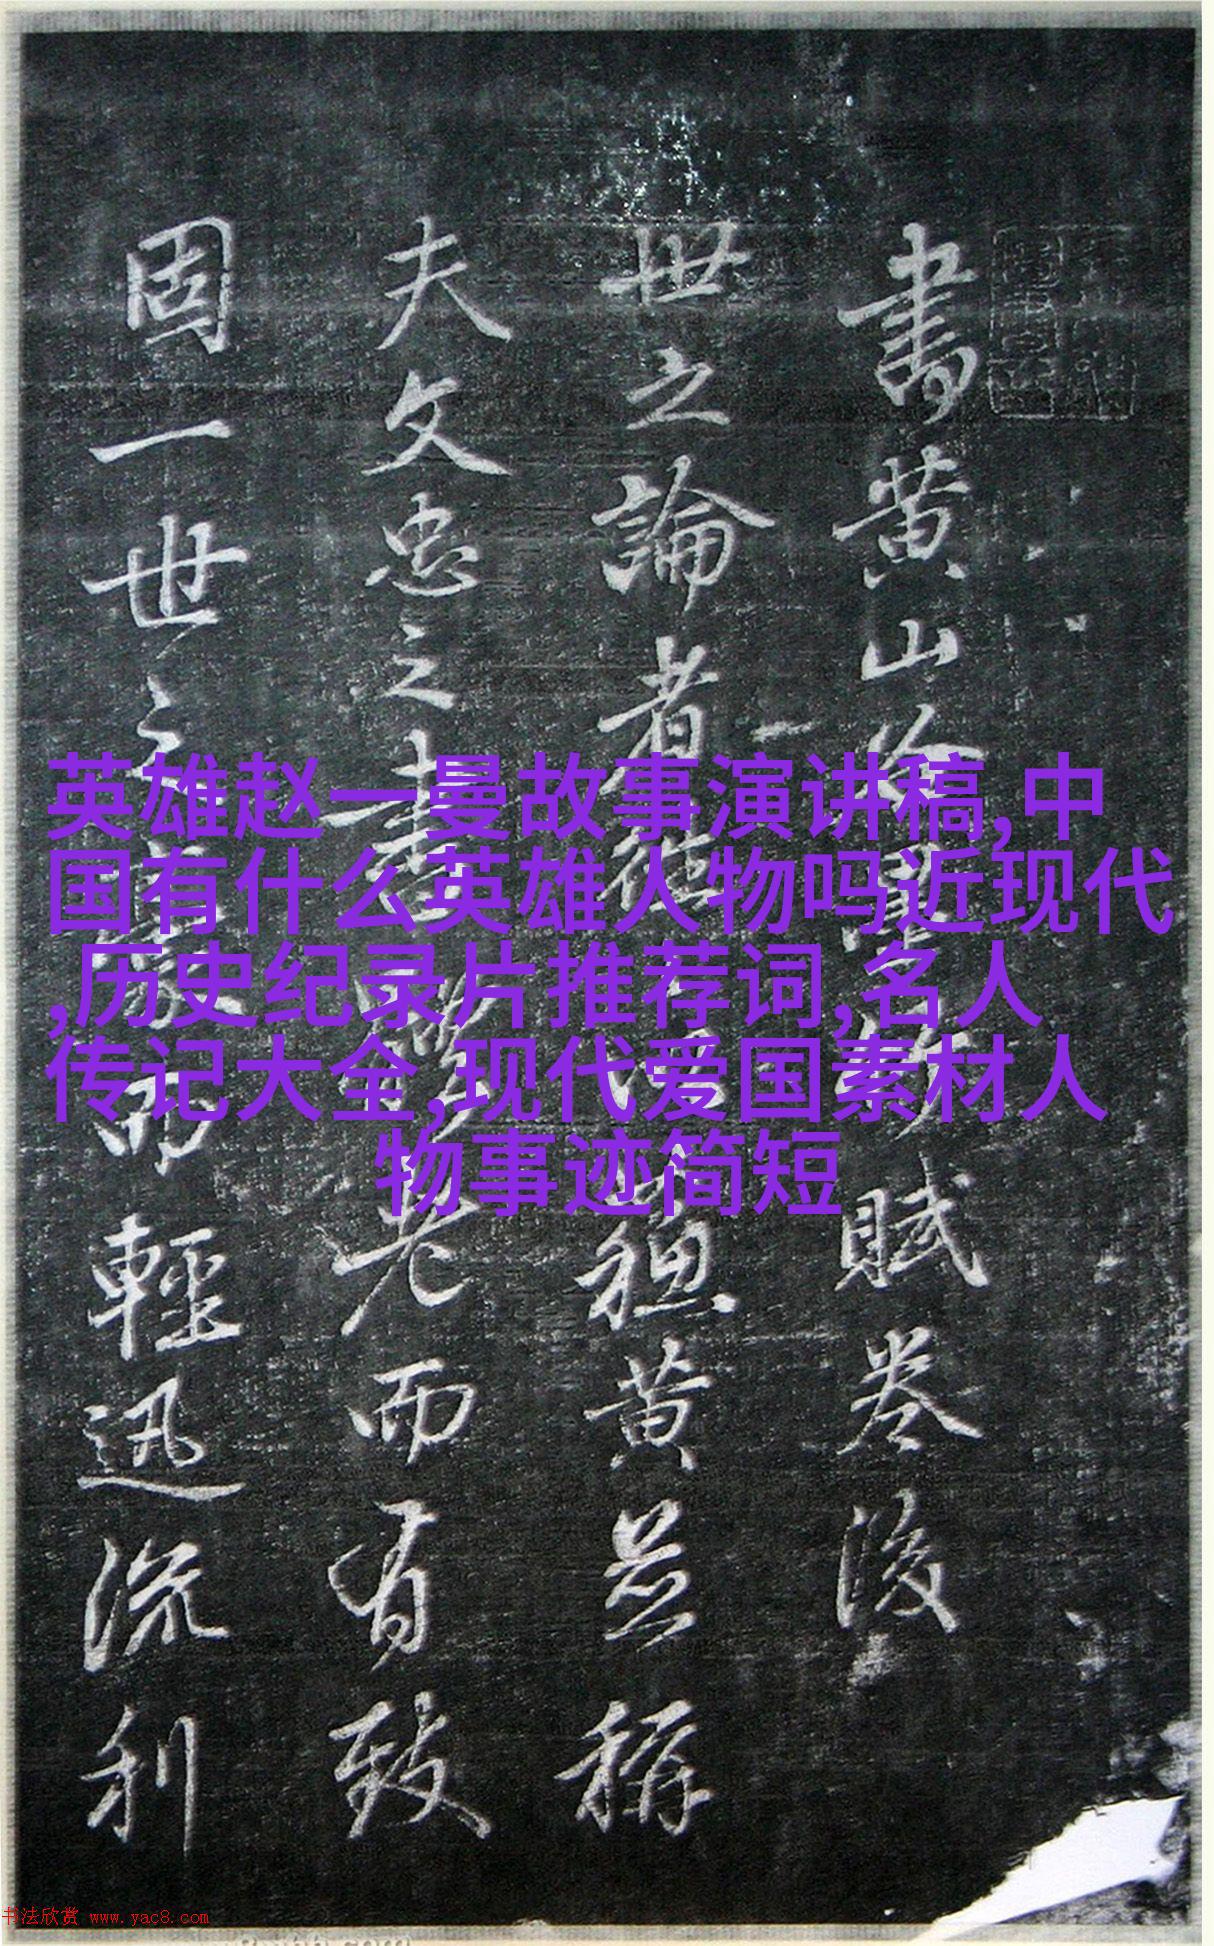 書黄山谷賦卷後
世之論者黄並稱
夫文忠之書老而有致
固一世之豪而輕迅流利
英雄赵一曼故事演讲稿,中
国有什么英雄人物吗近现代
,历史纪录片推荐词,名人
传记大全,现代爱国素材人
物事迹简短
书法欣赏 www.yac8.com